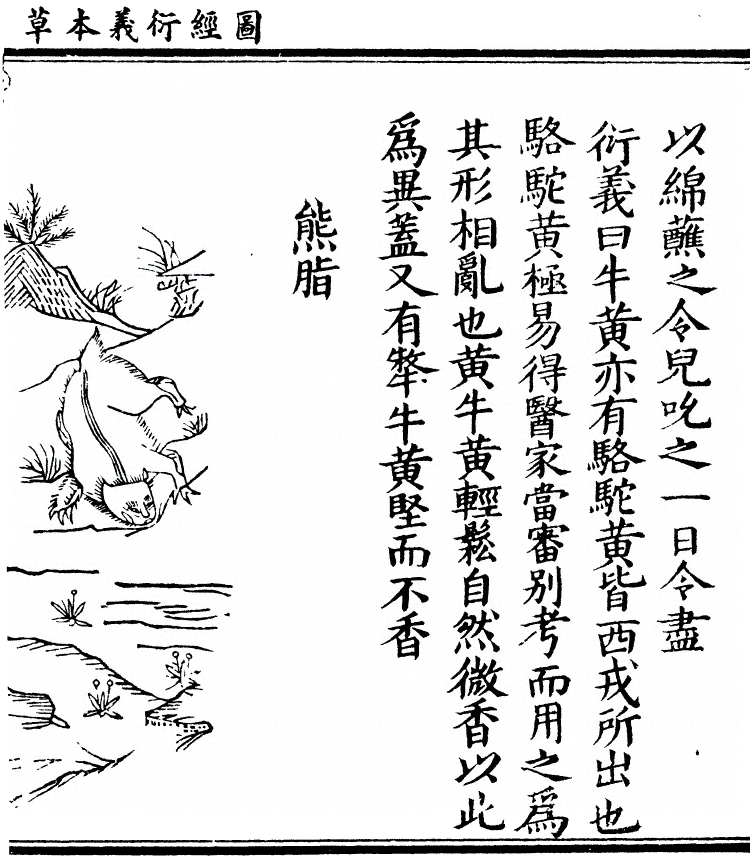 圖經衍義本草
以綿蘸之令兒吮之一日令盡
衍義曰牛黃亦有駱駝黃皆西戎所出也
駱駝黃極易得醫家當審别考而用之爲
其形相亂也黃牛黃輕鬆自然微香以此
爲異蓋又有犛牛黃堅而不香
熊脂